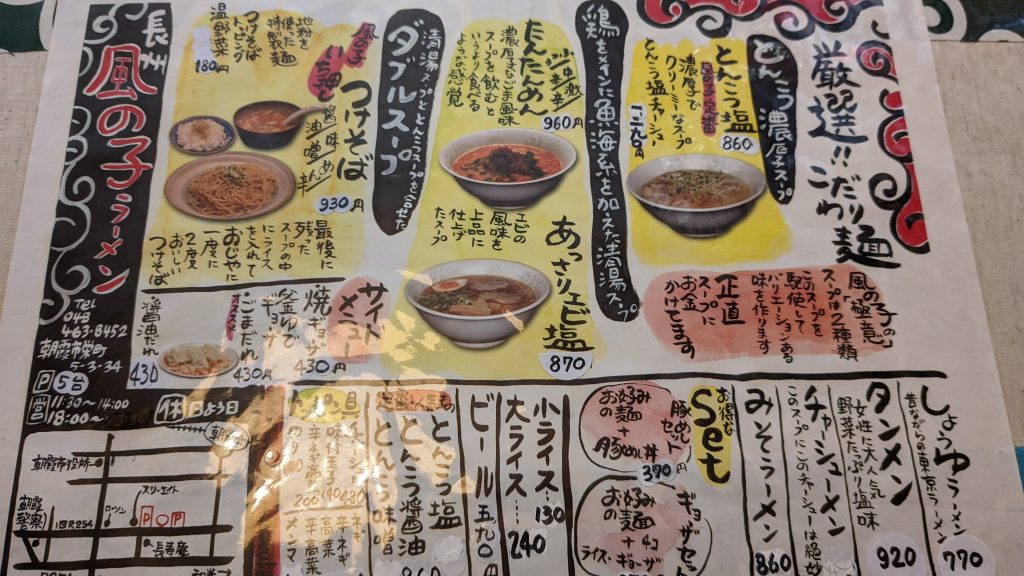 厳選!!こだわり麺
風の子の
「極意」
スープは2種類
このスープを
駆使して
バリエーションある
味を作ります
正直
スープに
お金
かけてます
とんこつ濃厚スープ
とんこつ塩
860
風の子定番
濃厚で
クリーミーなスープ
とんこつ塩チャーシュー
鶏をメインに魚海系を加えた清湯スープ
たんたんめん
960円
濃厚なゴマ風味
スープを飲むと
いうより食べる
ような感覚
あっさりエビ塩
870
エビの
風味を
上品に
仕上げ
たスープ
ダブルスープ
清湯スープととんこつスープを合せた
風の子
いち押し
つけそば
930円
地粉を
使った
特製麺
つけそば
トッピング
温野菜
180円
最後に
残った
スープの中
にライス
を入れて
おじやに
一度に
2度
おいしい
つけそば
サイド
メニュー
焼ギョーザ
430円
釜ゆで
ギョーザ
オススメ
ごまだれ
430円
醤油だれ
430
長州
風の子ラーメン
Tel
048
463-8452
朝霞市栄町
5-3-34
P5台
営11:30〜14:00
18:00〜
休日よう日
しょうゆラーメン
770
昔ながらの東京ラーメン
タンメン
920
女性に大人気
野菜たっぷり塩味
チャーシューメン
このスープにこのチャーシューは絶妙
みそラーメン
860
お得な
Set
豚めし
セット
お好み
の麺
+
豚めし丼
370円
ギョーザセット
お好み
の麺
+
ライス
小ライス 130
大ライス 240
ビール 五九〇円
定番人気の
とんこつ塩
とんこつ醤油
とんこつ味噌
ネギ
辛ネギ
高菜
辛高菜
メンマ
朝霞市役所
朝霞
警察
旧R254
ローソン
スリーエイト
P
長寿庵